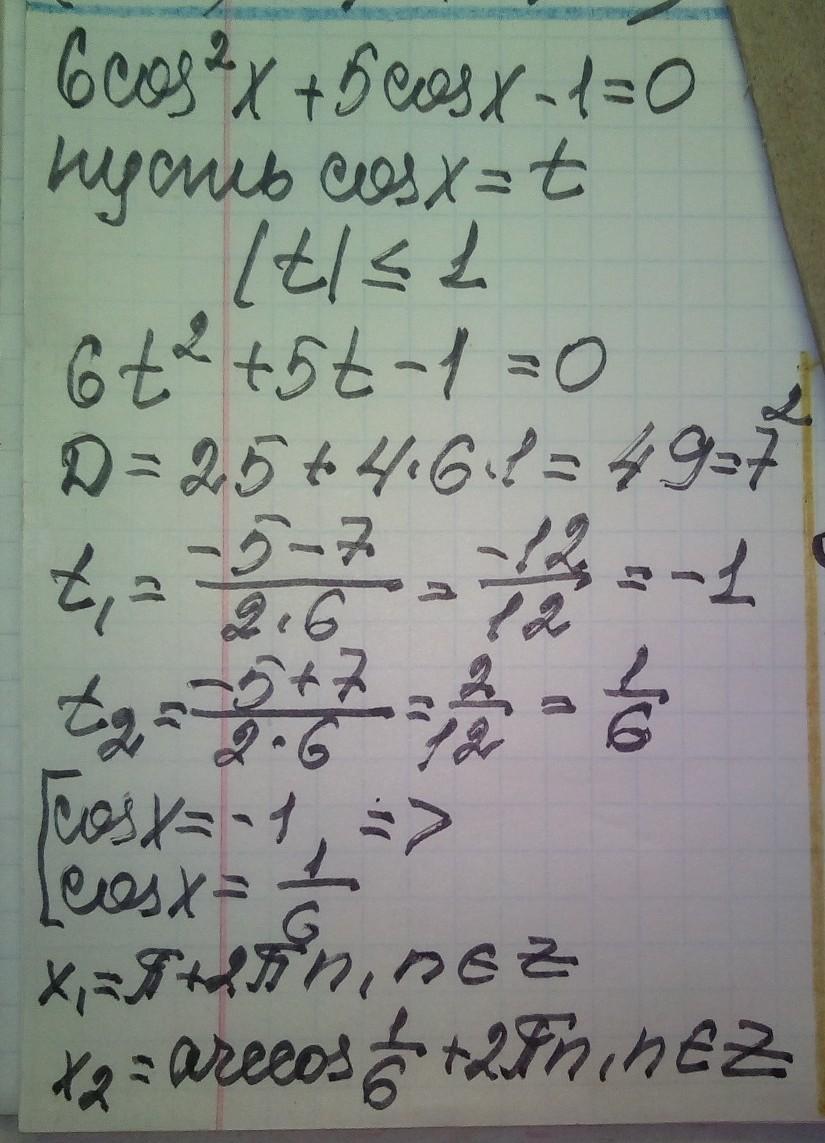 6cos²x + 5cosx - 1 = 0
пусть cosx = t
|t| ≤ 1
6t² + 5t - 1 = 0
D = 25 + 4·6·1 = 49 = 7²
t₁ = (-5-7)/(2·6) = -12/12 = -1
t₂ = (-5+7)/(2·6) = 2/12 = 1/6
[cosx = -1 =>
cosx = 1/6
x₁ = π + 2πn, n ∈ Z
x₂ = arccos 1/6 + 2πn, n ∈ Z